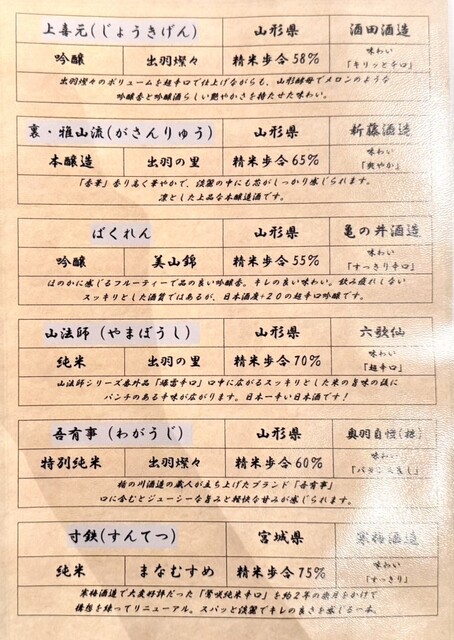 上喜元(じょうきげん) 山形県 酒田酒造
吟醸 出羽燦々 精米歩合58% 味わい「キリッと辛口」
出羽燦々のボリュームを超辛口で仕上げながらも、山形酵母でメロンのような
吟醸香と吟醸酒らしい艶やかさを持たせた味わい。
裏・雅山流(がさんりゅう) 山形県 新藤酒造
本醸造 出羽の里 精米歩合65% 味わい「爽やか」
「香華」香り高く華やかで、淡麗の中にも芯がしっかり感じられます。
凛とした上品な本醸造酒です。
ばくれん 山形県 亀の井酒造
吟醸 美山錦 精米歩合55% 味わい「すっきり辛口」
ほのかに感じるフルーティーで品の良い吟醸香。キレの良い味わい。飲み疲れしない
スッキリとした酒質ではあるが、日本酒度+20の超辛口吟醸です。
山法師(やまほうし) 山形県 六歌仙
純米 出羽の里 精米歩合70% 味わい「超辛口」
山法師シリーズ番外品「爆雷辛口」口中に広がるスッキリとした米の旨味の後に
パンチのある辛味が広がります。日本一辛い日本酒です!
吾有事(わがうじ) 山形県 奥羽自慢(株)
特別純米 出羽燦々 精米歩合60% 味わい「バランス良し」
楯の川酒造の蔵人が立ち上げたブランド「吾有事」
口に含むとジューシーな旨みと軽快な甘みが感じられます。
寸鉄(すんてつ) 宮城県 寒梅酒造
純米 まなむすめ 精米歩合75% 味わい「すっきり」
寒梅酒造で大変好評だった「鶯咲純米辛口」を約2年の歳月をかけて
構想を練ってリニューアル。スパッと淡麗でキレの良さを感じる一本。